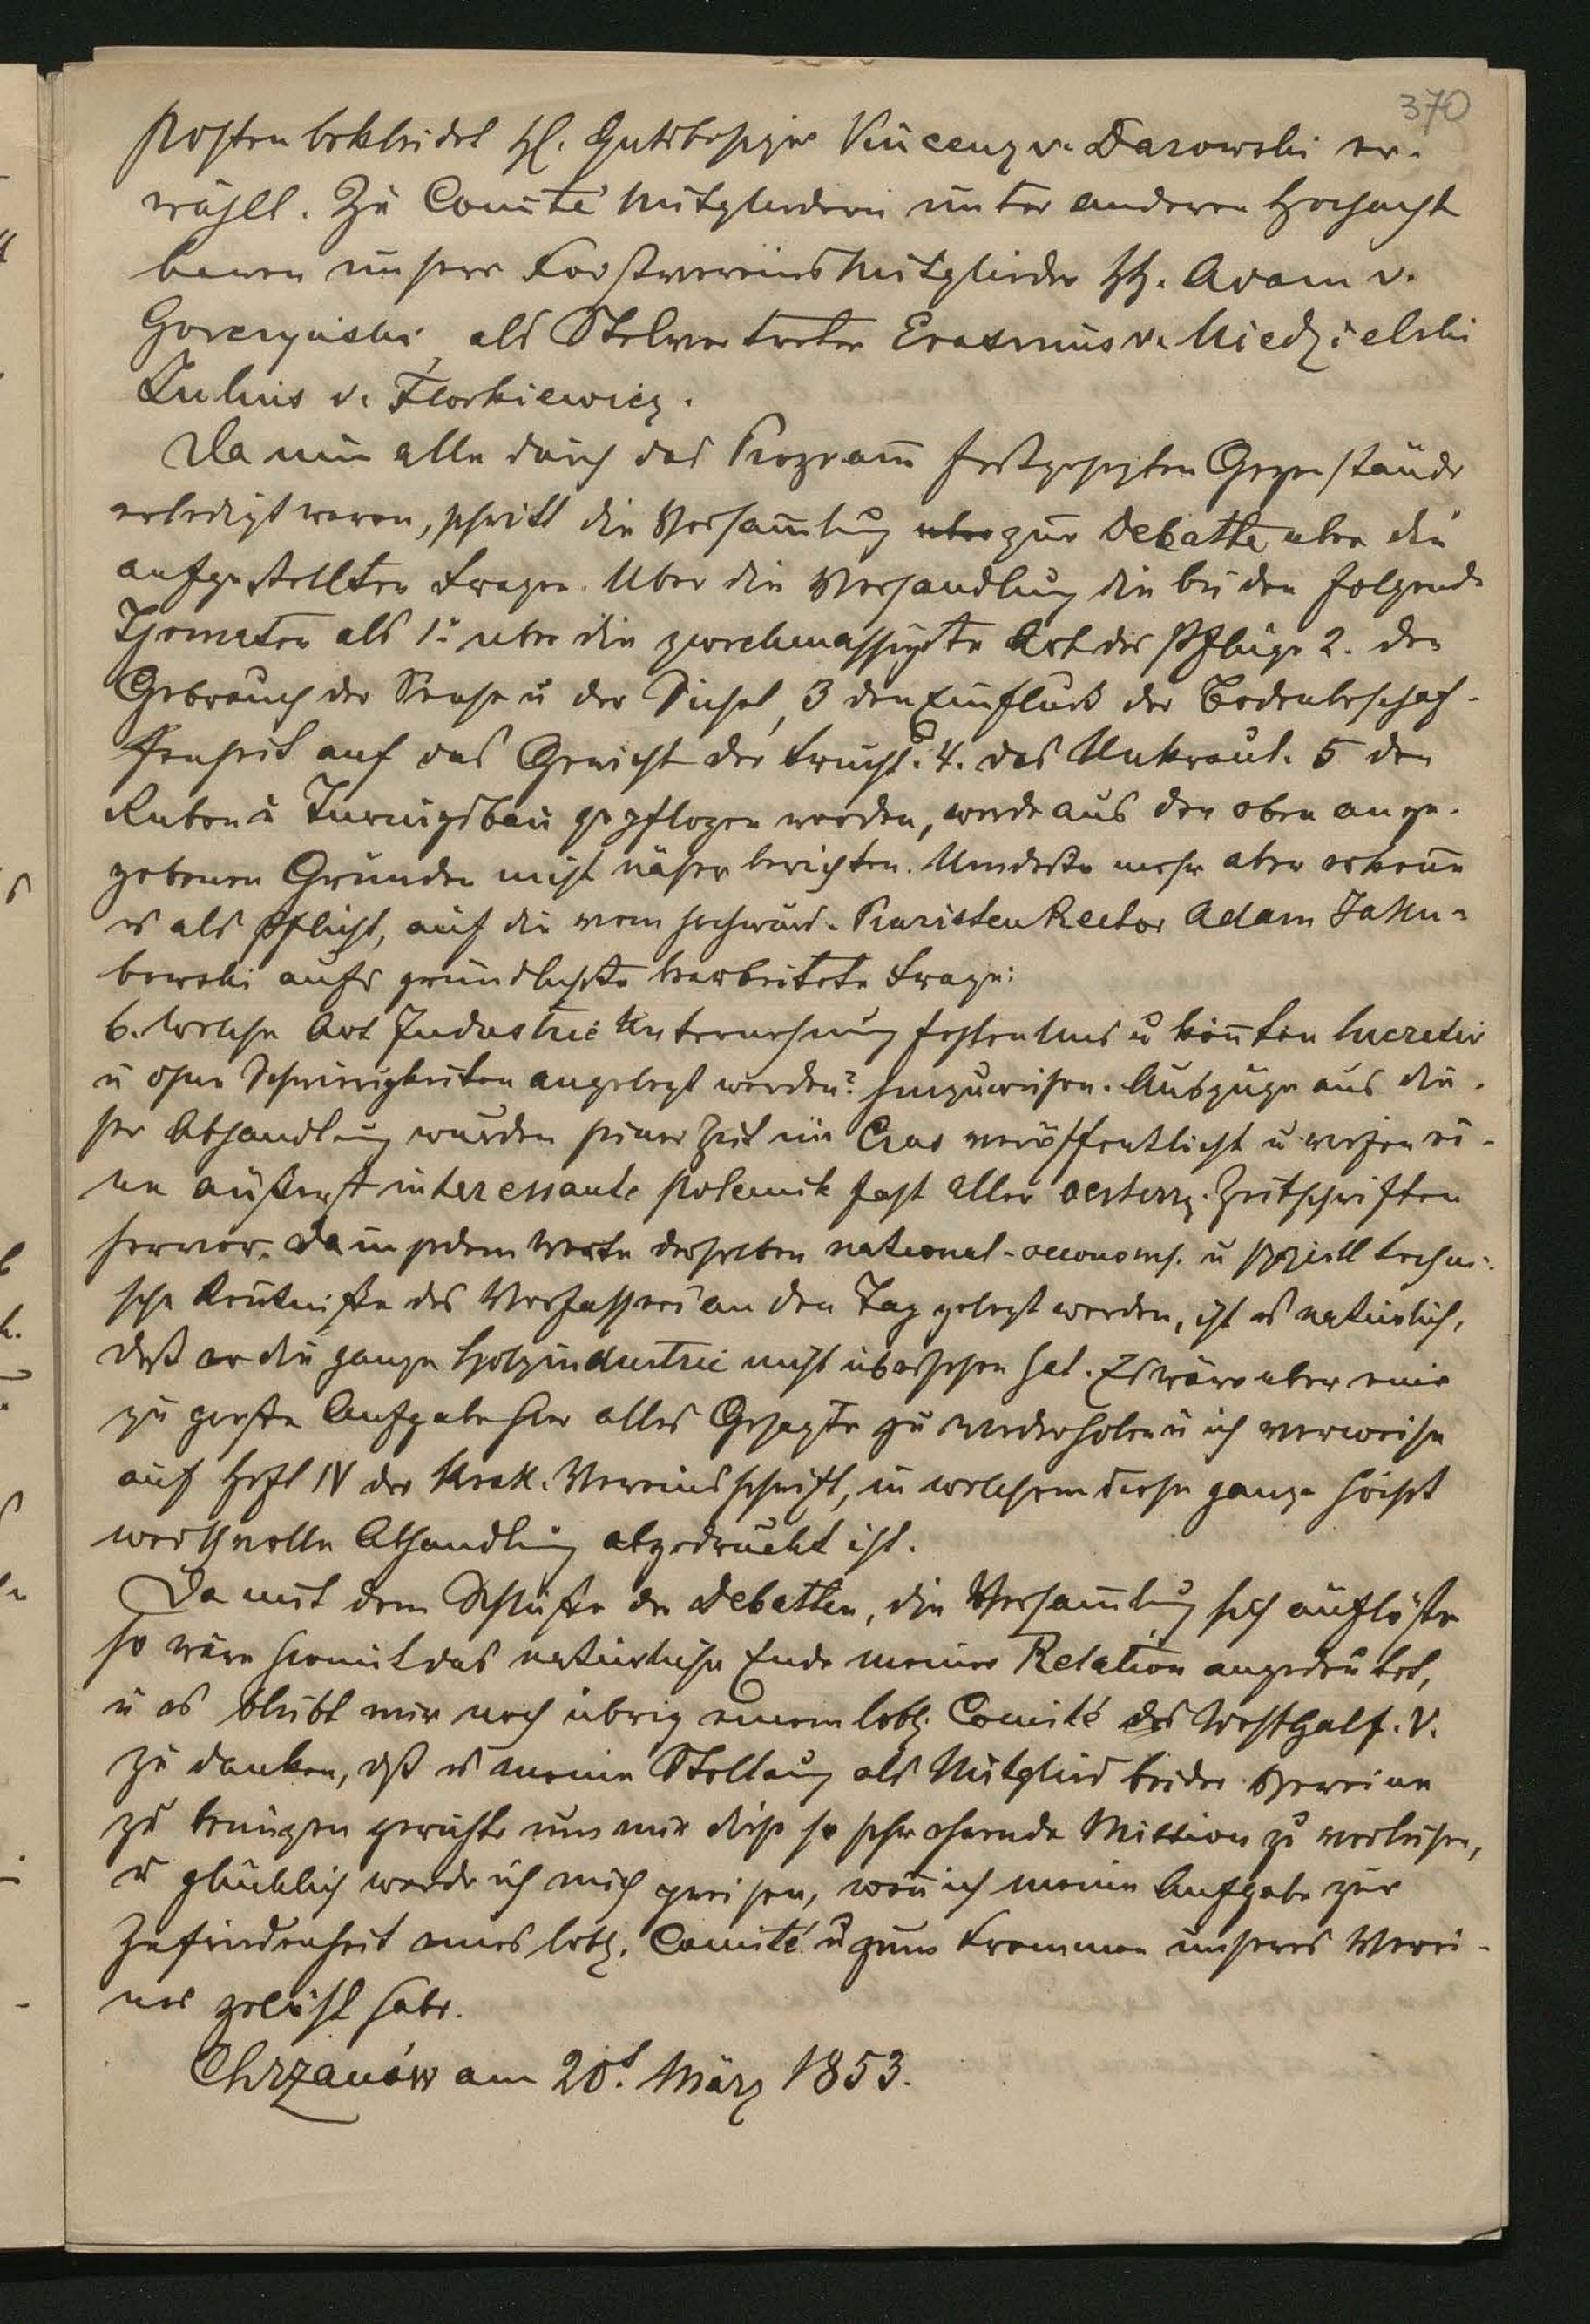 370
Posten bekleidet H. Gutsbesitzer Vincenz v. Darowski er-
wählt. Zu Comité Mitgliedern unter anderen hochacht
baren unsere Forstvereins Mitglieder HH. Adam v.
Gorczyński, als Stelvertreter Erasmus v. Niedzielski
Julius v. Florkiewicz.
Da nun alle durch das Programm festgesezten Gegenstände
erledigt waren, schritt die Versammlung zur Debatte uber die
aufgestellten Fragen. Uber die Verhandlung die bei den folgende
Themáten als 1: uber die zweckmassigste Art der Pflüge 2. den
Gebrauch der Sense u der Sichel, 3 den Einfluß der Bodenbeschaf-
fenheit auf das Gewicht der Frucht. 4. das Unkraut. 5 den
Ruben u Turnipsbau gepflogen worden, werde aus den oben ange-
gebenen Gründen nicht näher berichten. Umdesto mehr aber erkenne
es als Pflicht, auf die vom hochwürd. Piaristen Rector Adam Jaku-
bowski aufs gründlichste bearbeitete Frage:
6. Welche Art Industrie Unternehmung fehlen uns u könnten lucrativ
u ohne Schwierigkeiten angelegt werden? hinzuweisen. Auszüge aus die-
ser Abhandlung wurden seiner Zeit im Czas veröffentlicht u riefen ei-
ne äußerst interessante Polemik fast aller oesterr. Zeitschriften
hervor. Da in jedem Worte derselben national-oeconoms. u speziell techni-
sche Kentniße des Verfassers an den Tag gelegt werden, ist es natürlich,
daß er die ganze Holzindustrie nicht übersehen hat. Es wäre aber eine
zu große Aufgabe hier alles Gesagte zu wiederholen u ich verweise
auf Heft IV der Krak. Vereinsschrift, in welchem diese ganze höchst
werthvolle Abhandlung abgedruckt ist.
Da mit dem Schluße der Debatten, die Versammlung sich auflöste
so wäre hiemit das natürliche Ende meiner Relation angedeutet,
u es bleibt mir noch übrig einem löbl. Comité des Westgal. f. V.
zu danken, daß es meine Stellung als Mitglied beider Vereine
zu benüzen geruhte um mir diese so sehr ehrende Mission zu verleihen,
u glücklich werde ich mich preisen, wenn ich meine Aufgabe zur
Zufriedenheit eines löbl. Comité u zum Frommen unseres Verei-
nes gelöst habe.
Chrzanów am 20t März 1853.